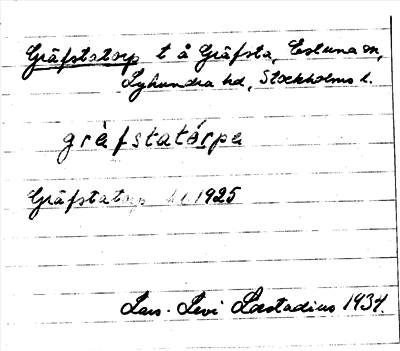 Gräfstatorp t å Gräfsta, Estuna sn,
Lyhundra hd, Stockholms l.
grèfstatórpa
Gräfstatorp 1925
Lars-Levi Læstadius 1934.